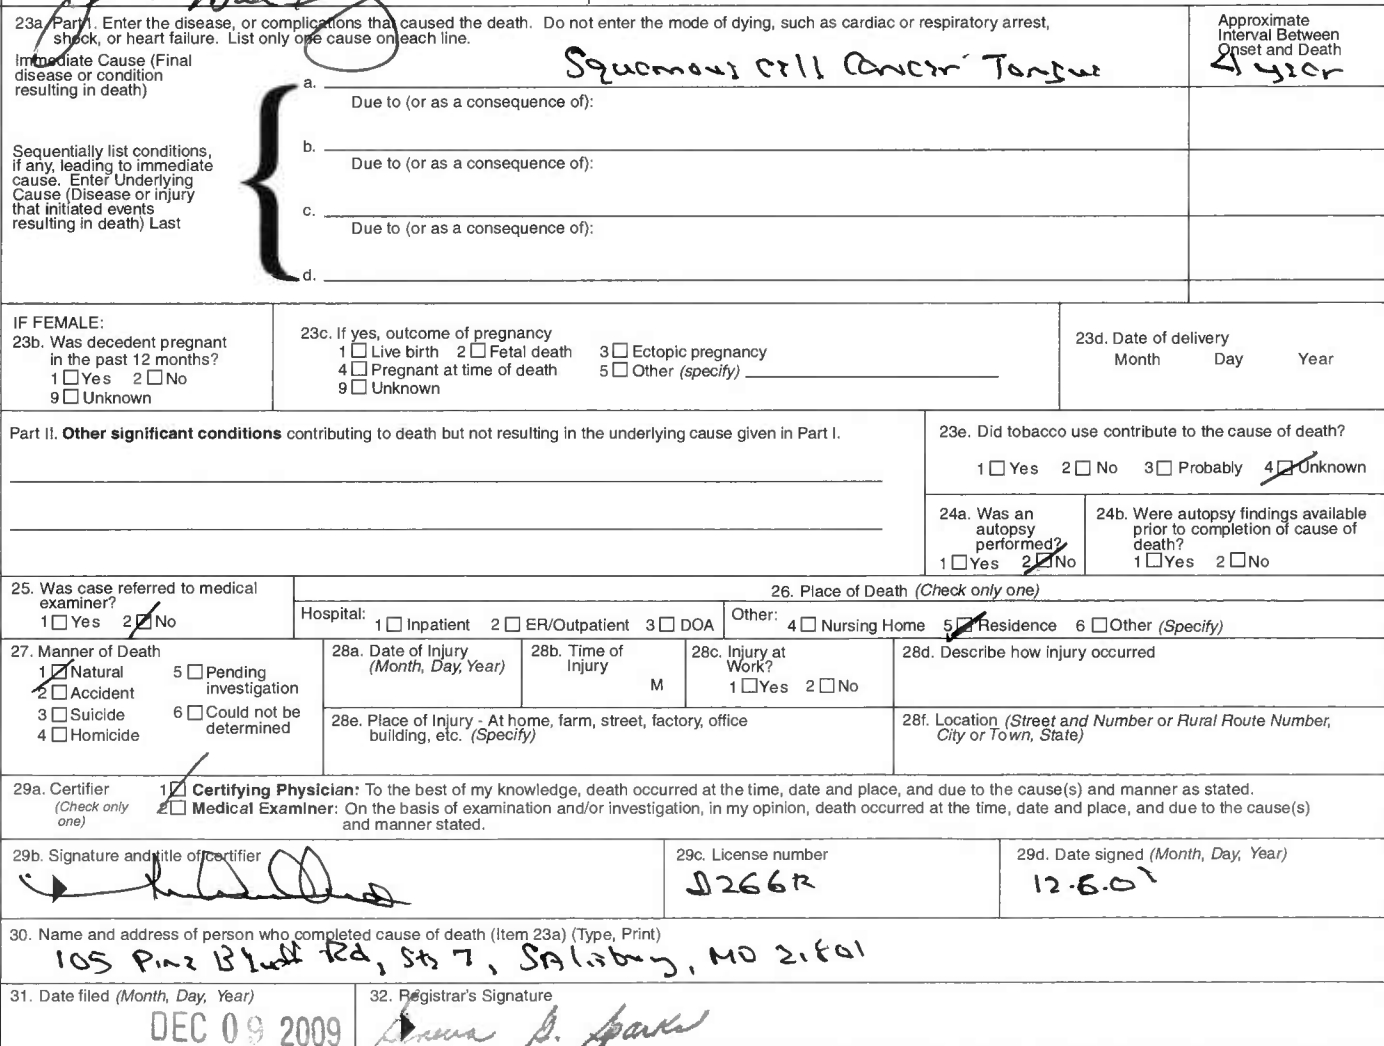 23a. Part I. Enter the disease, or complications that caused the death. Do not enter the mode of dying, such as cardiac or respiratory arrest,
shock, or heart failure. List only one cause on each line.
Approximate
Interval Between
Onset and Death
Immediate Cause (Final
disease or condition
resulting in death)
a. Squamous cell Cancer Tongue
year
Due to (or as a consequence of):
b.
Sequentially list conditions,
if any, leading to immediate
cause. Enter Underlying
Cause (Disease or injury
that initiated events
resulting in death) Last
Due to (or as a consequence of):
c.
Due to (or as a consequence of):
d.
IF FEMALE:
23b. Was decedent pregnant
in the past 12 months?
1 Yes 2 No
9 Unknown
23c. If yes, outcome of pregnancy
1 Live birth 2 Fetal death 3 Ectopic pregnancy
4 Pregnant at time of death 5 Other (specify)
9 Unknown
23d. Date of delivery
Month Day Year
Part II. Other significant conditions contributing to death but not resulting in the underlying cause given in Part I.
23e. Did tobacco use contribute to the cause of death?
1 Yes 2 No 3 Probably 4 Unknown
24a. Was an
autopsy
performed?
1 Yes 2 No
24b. Were autopsy findings available
prior to completion of cause of
death?
1 Yes 2 No
25. Was case referred to medical
examiner?
1 Yes 2 No
26. Place of Death (Check only one)
Hospital: 1 Inpatient 2 ER/Outpatient 3 DOA
Other: 4 Nursing Home 5 Residence 6 Other (Specify)
27. Manner of Death
1 Natural 5 Pending
investigation
2 Accident
3 Suicide 6 Could not be
determined
4 Homicide
28a. Date of Injury
(Month, Day, Year)
28b. Time of
Injury
M
28c. Injury at
Work?
1 Yes 2 No
28d. Describe how injury occurred
28e. Place of Injury - At home, farm, street, factory, office
building, etc. (Specify)
28f. Location (Street and Number or Rural Route Number,
City or Town, State)
29a. Certifier
(Check only
one)
1 Certifying Physician: To the best of my knowledge, death occurred at the time, date and place, and due to the cause(s) and manner as stated.
2 Medical Examiner: On the basis of examination and/or investigation, in my opinion, death occurred at the time, date and place, and due to the cause(s)
and manner stated.
29b. Signature and title of certifier
29c. License number
29d. Date signed (Month, Day, Year)
30. Name and address of person who completed cause of death (Item 23a) (Type, Print)
105 Pine Bluff Rd, Ste 7, Salisbury, MD 21801
31. Date filed (Month, Day, Year)
DEC 09 2009
32. Registrar's Signature
B. Sparks